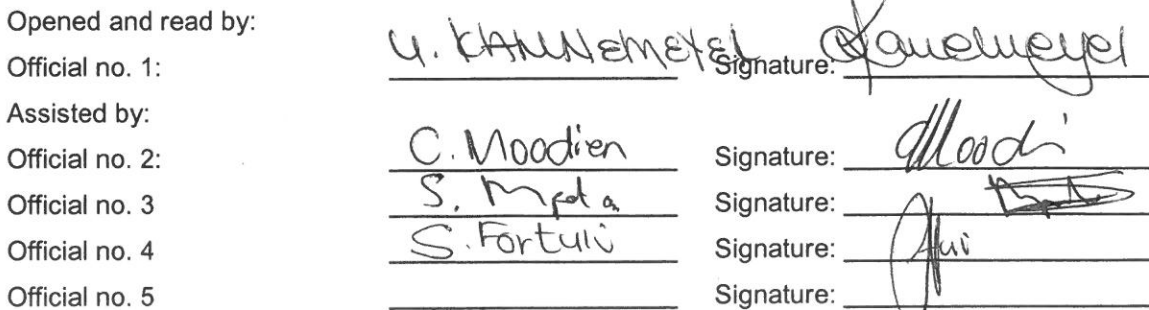 Opened and read by:
Official no. 1: U. KANNEMEYER Signature: Kannemeyer
Assisted by:
Official no. 2: C. Moodien Signature: Moodi
Official no. 3 S. Signature:
Official no. 4 S. Fortuin Signature:
Official no. 5 Signature: